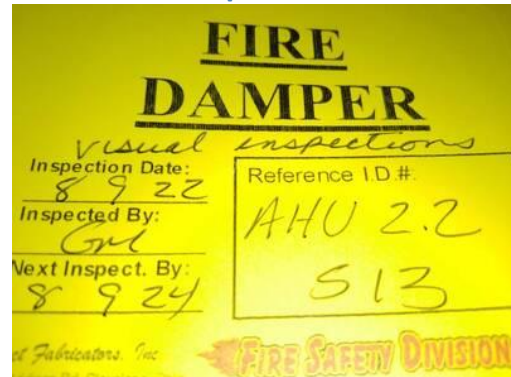 FIRE
DAMPER
visual inspections
Inspection Date:
8 9 22
Inspected By:
Next Inspect. By:
8 9 24
Reference I.D.#:
AHU 2.2
S13
Fabricators, Inc
FIRE SAFETY DIVISION